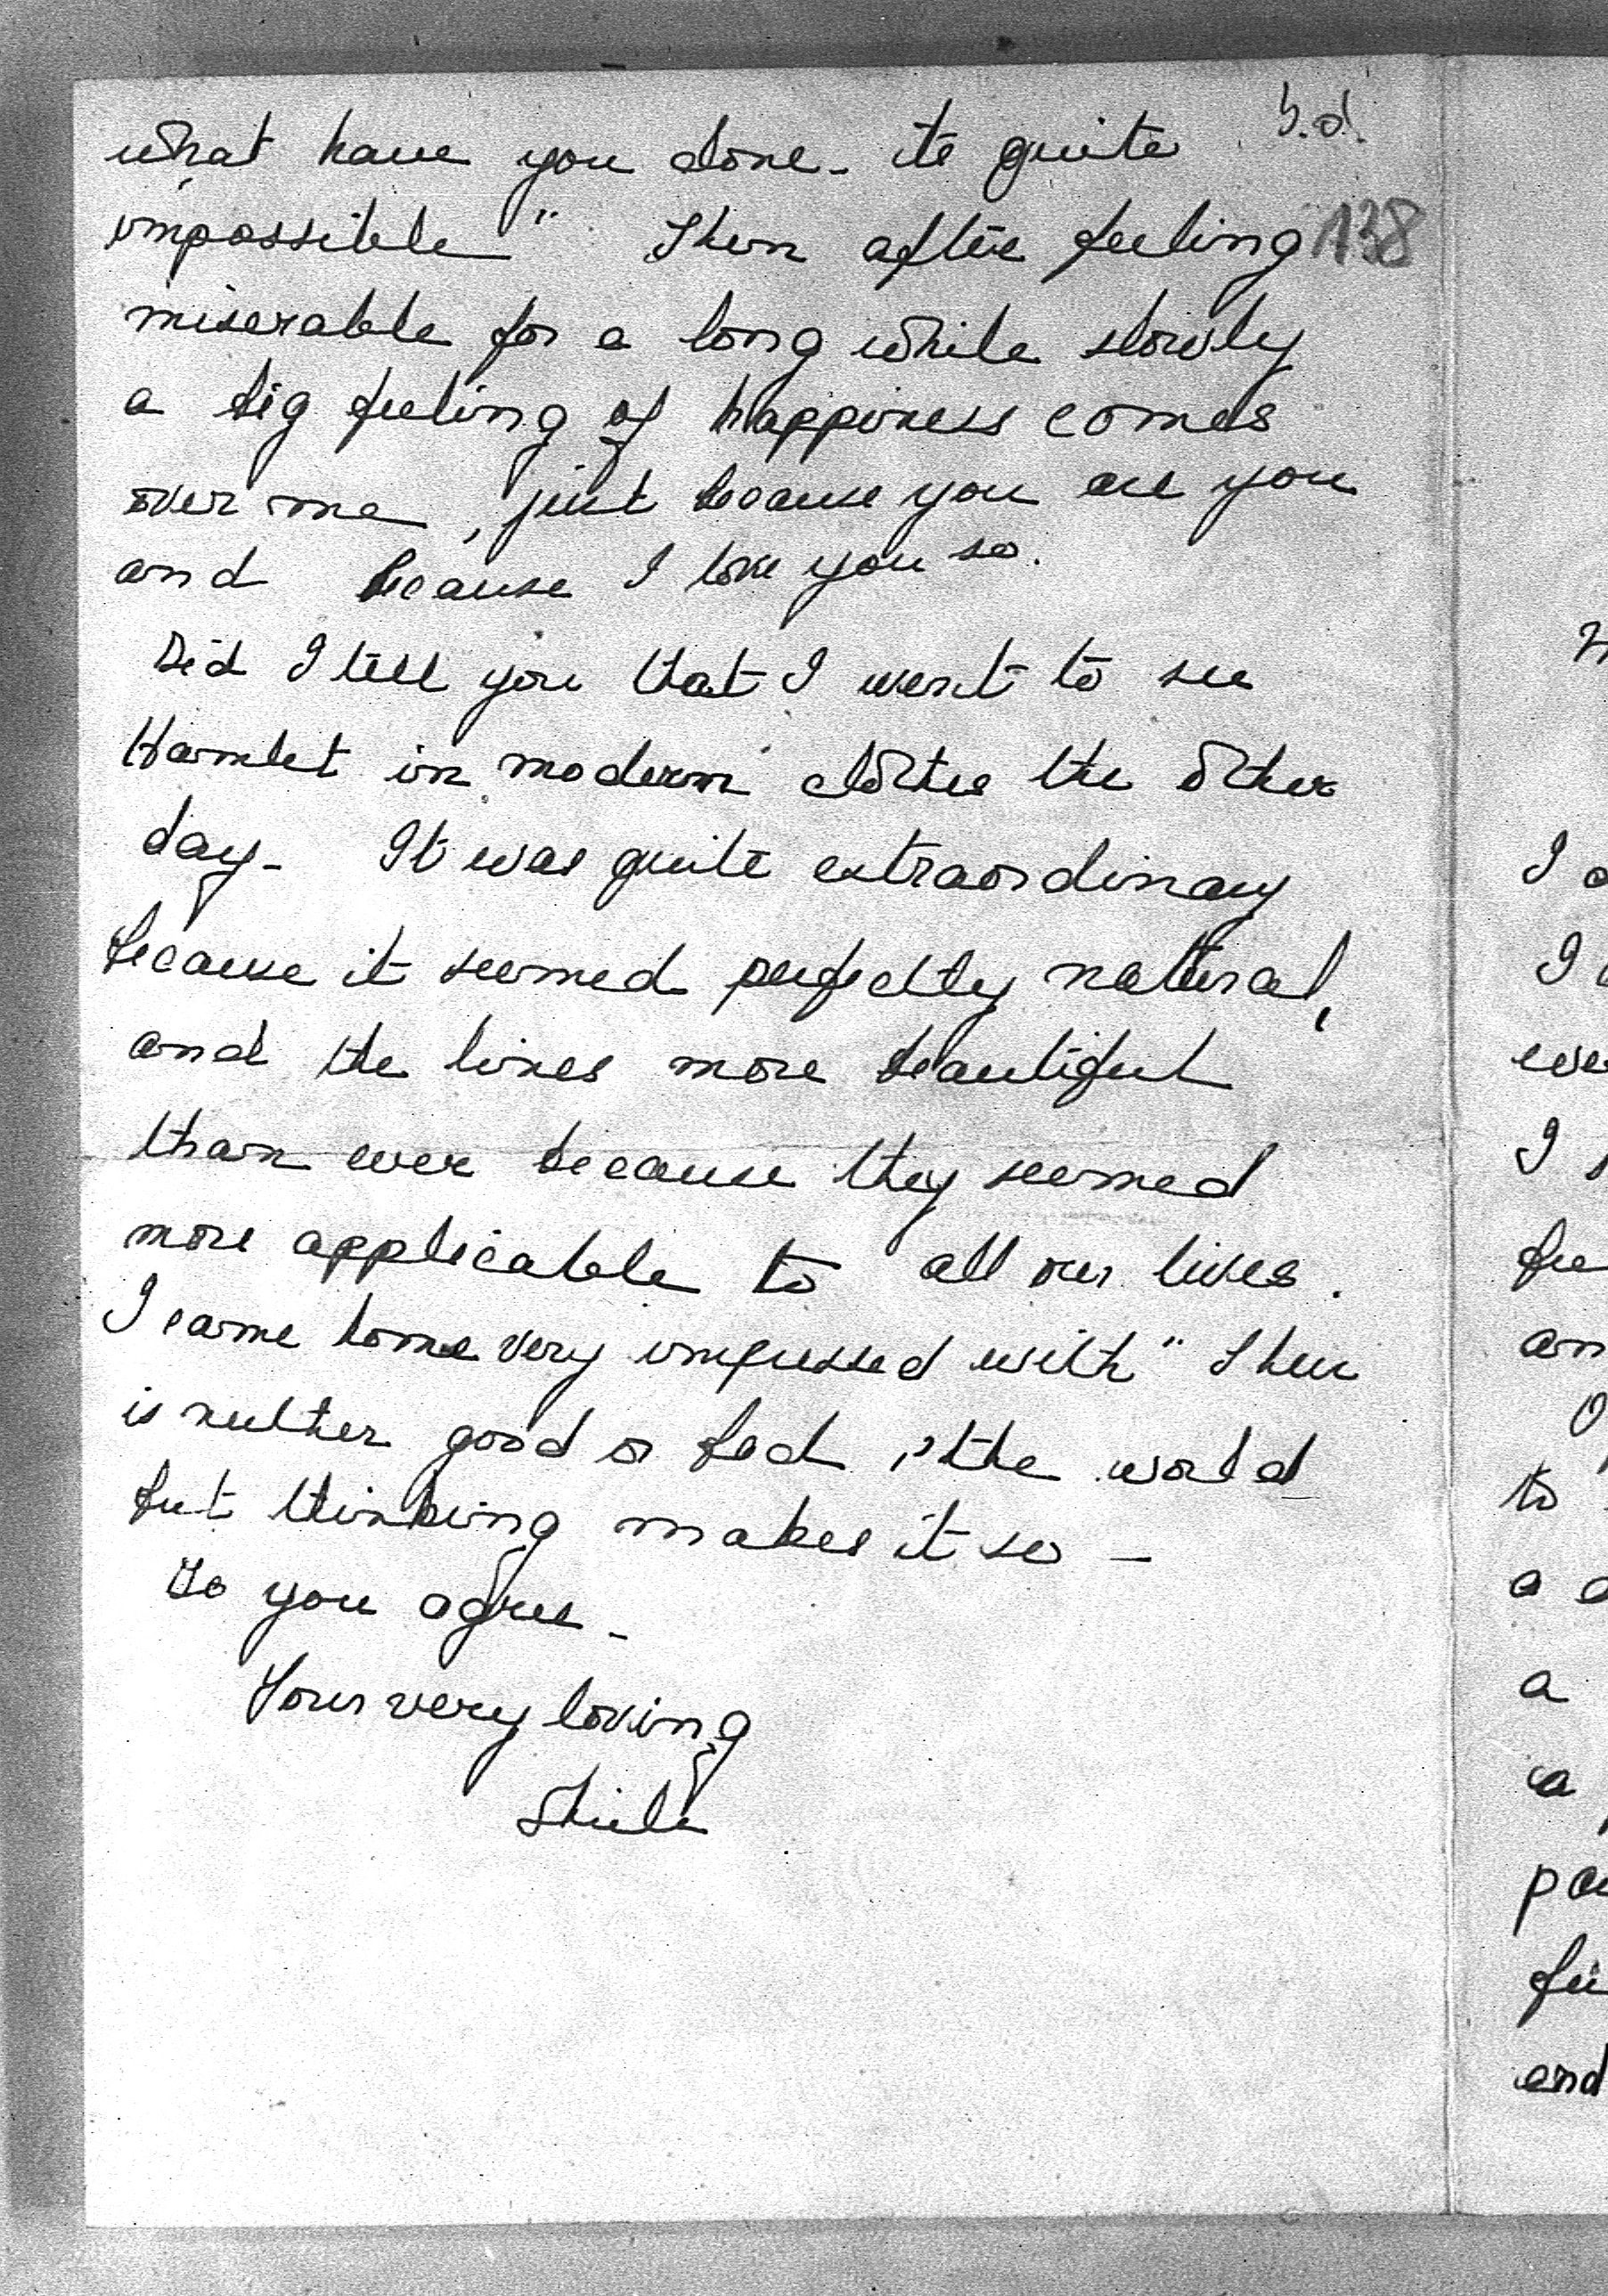 b.d.
what have you done - its quite
138
impossible" Then after feeling
miserable for a long while slowly
a big feeling of happiness comes
over me, just because you are you
and because I love you so.
Did I tell you that I went to see
Hamlet in modern clothes the other
day - It was quite extraordinary
because it seemed perfectly natural,
and the lines more beautiful
than ever because they seemed
more applicable to all our lives.
I came home very impressed with "There
is neither good or bad i'the world
but thinking makes it so -
Do you agree -
Your very loving
Shiela
I
I
eve
I
fee
an
to
a
a
a
po
end